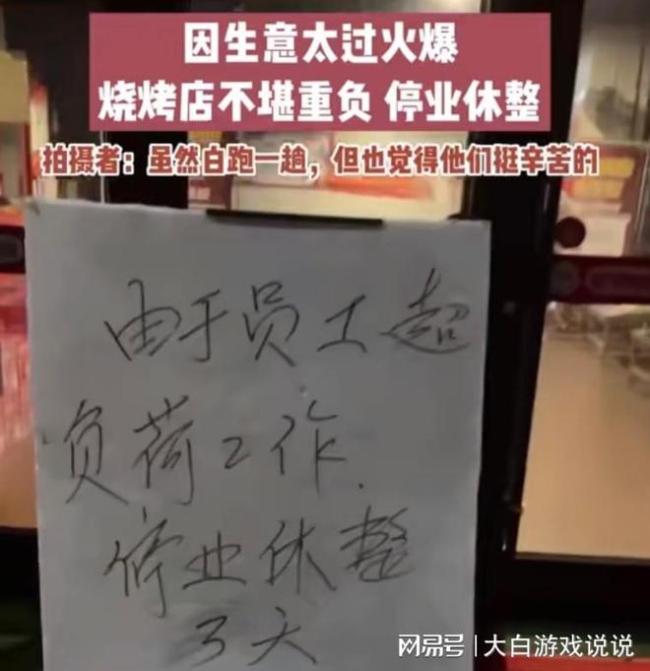 因生意太过火爆
烧烤店不堪重负 停业休整
拍摄者：虽然白跑一趟，但也觉得他们挺辛苦的
由于员工超
负荷工作.
停业休整
3天
网易号 | 大白游戏说说